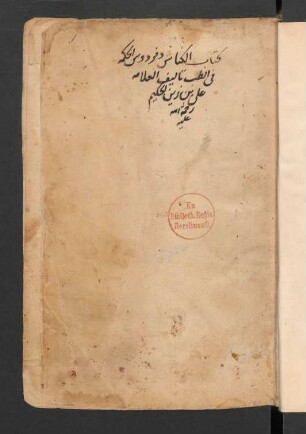 كتاب الكناش فردوس الحكمة
فى الطب تاليف العلامه
على بن زين الحكيم
رحمة الله
عليه
Ex
Biblioth. Regia
Berolinensi